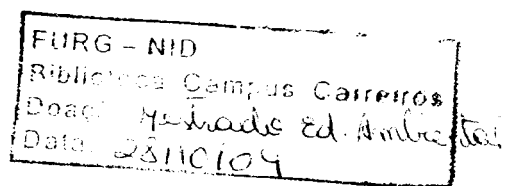 FURG - NID
Biblioteca Campus Carreiros
Doaç. Mestrado Ed. Ambiental
Data 28/10/04